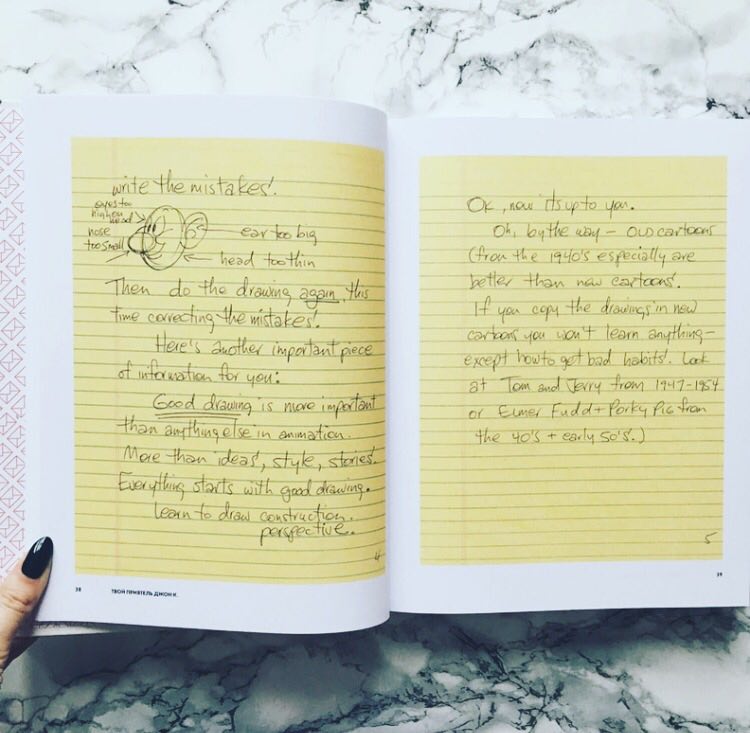 write the mistakes.
eyes too
high on
head
nose
too small
ear too big
head too thin
Then do the drawing again, this
time correcting the mistakes.
Here's another important piece
of information for you:
Good drawing is more important
than anything else in animation.
More than ideas, style, stories.
Everything starts with good drawing.
Learn to draw construction.
perspective.
4
38 ТВОЙ ПРИЯТЕЛЬ ДЖОН К.
Ok, now its up to you.
Oh, by the way - OLD cartoons
(from the 1940's especially are
better than new cartoons.
If you copy the drawings in new
cartoons you won't learn anything -
except how to get bad habits. Look
at Tom and Jerry from 1947-1954
or Elmer Fudd + Porky Pig from
the 40's + early 50's.)
5
39